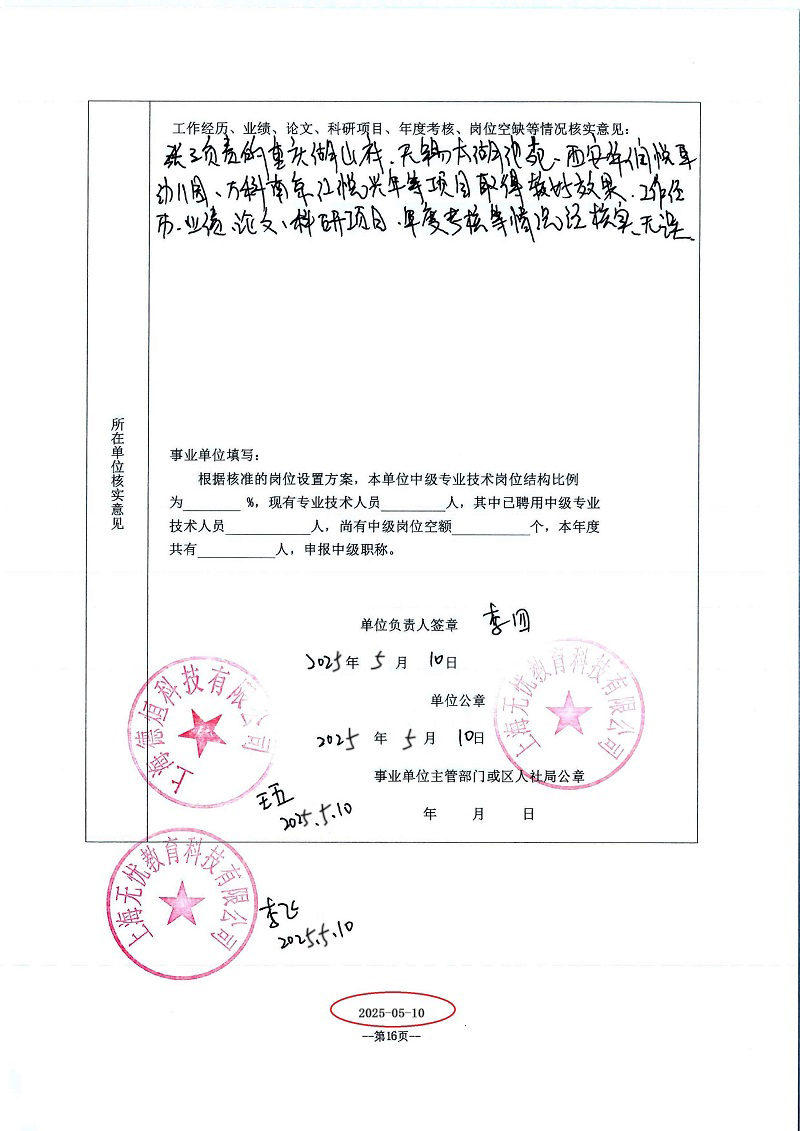 工作经历、业绩、论文、科研项目、年度考核、岗位空缺等情况核实意见:
张三负责的重庆湖山村、无锡太湖花苑、西安华伯悦尊
幼儿园、万科南京江悦兴年等项目取得较好效果、工作经
历、业绩、论文、科研项目、年度考核等情况经核实、无误
所在单位核实意见
事业单位填写:
根据核准的岗位设置方案,本单位中级专业技术岗位结构比例
为________ %,现有专业技术人员_________人,其中已聘用中级专业
技术人员____________人,尚有中级岗位空额___________个,本年度
共有___________人,申报中级职称。
单位负责人签章 李四
2025年 5 月 10日
单位公章
2025 年 5 月 10日
事业单位主管部门或区人社局公章
年 月 日
上海无忧教育科技有限公司
上海德恒科技有限公司
王五
2025.5.10
上海无忧教育科技有限公司
李飞
2025.5.10
2025-05-10
--第16页--